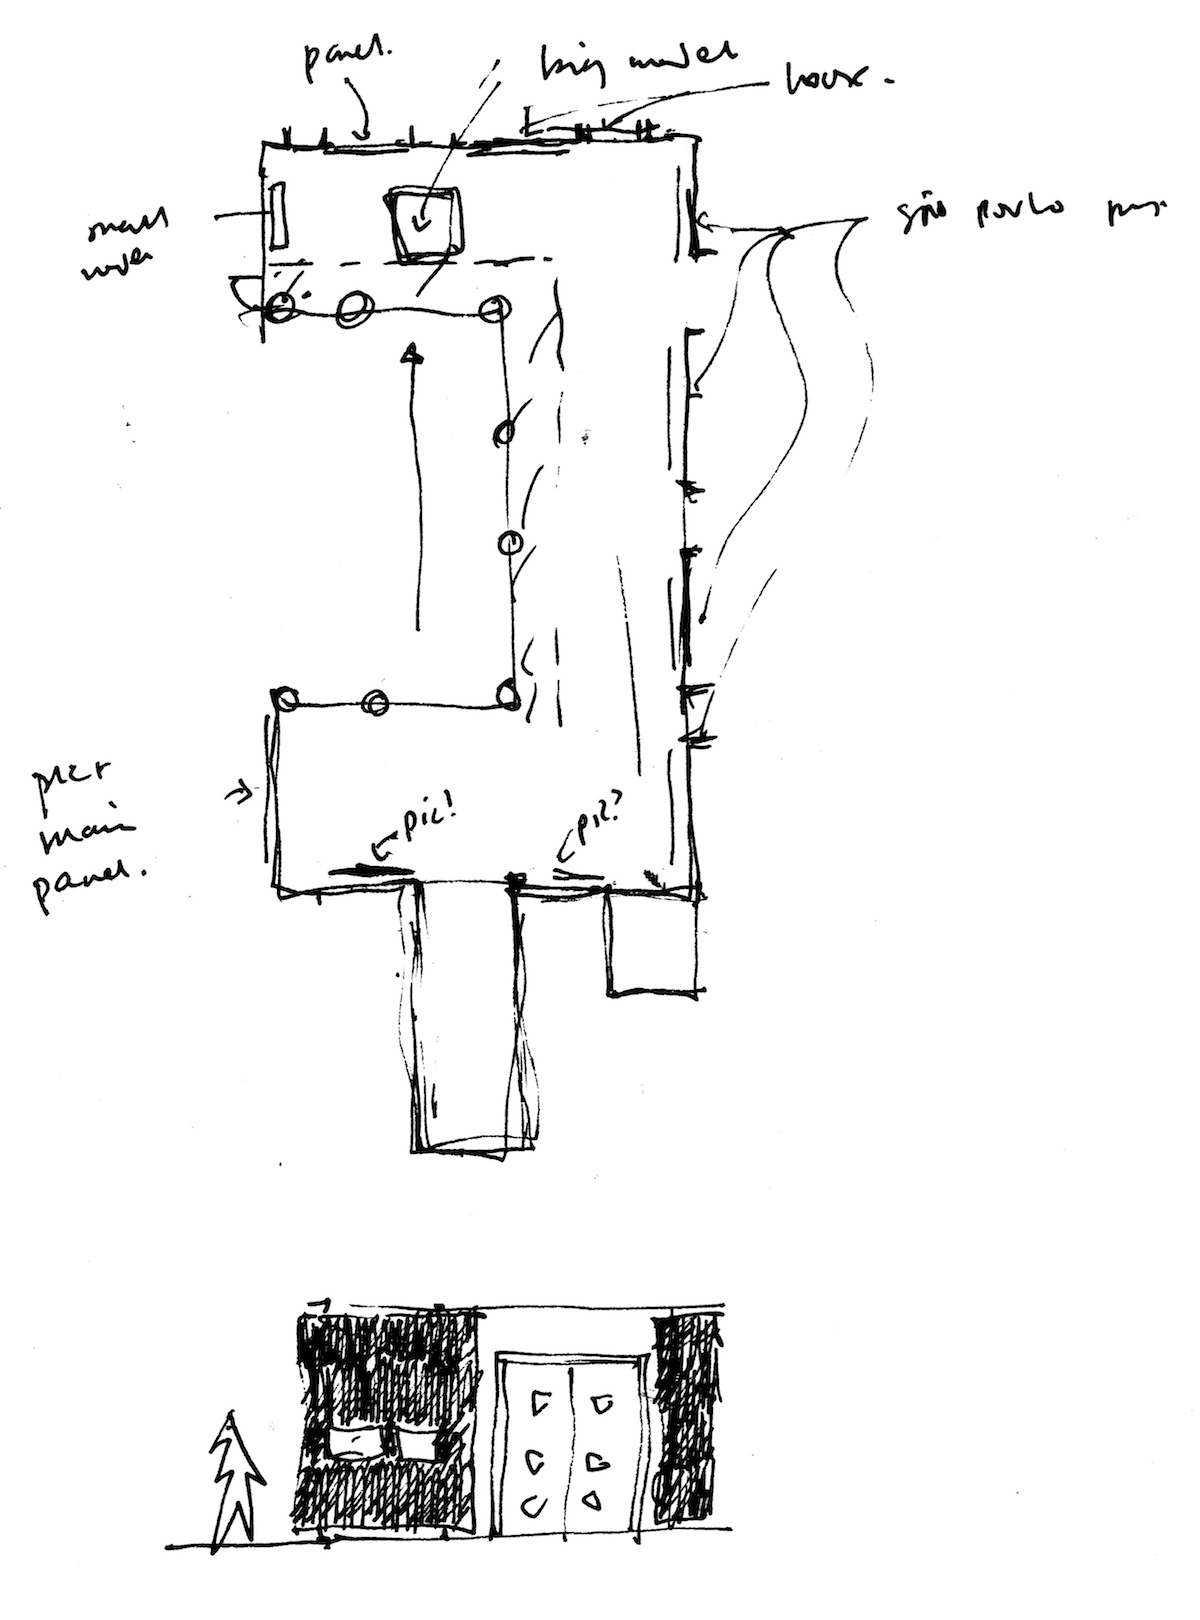 panel.
big model
house.
small
model
são paulo
pic!
pic?
main
panel.